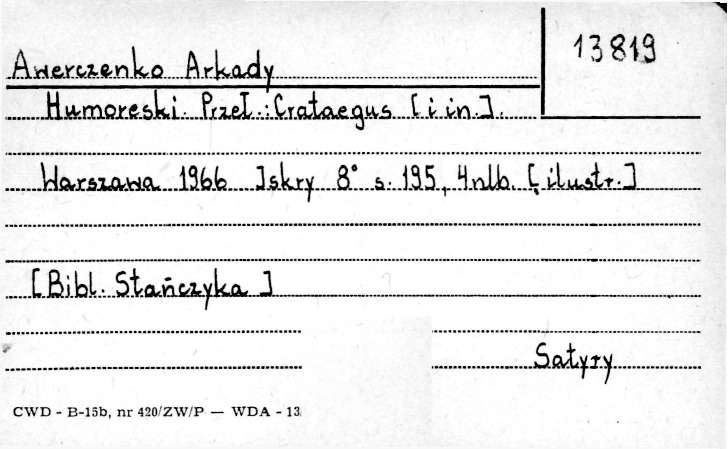 13819
Awerczenko Arkady
Humoreski. Przeł.: Crataegus [i in.].
Warszawa 1966 Iskry 8° s. 195, 4nlb. [ilustr.]
[Bibl. Stańczyka]
Satyry
CWD - B-15b, nr 420/ZW/P — WDA - 13